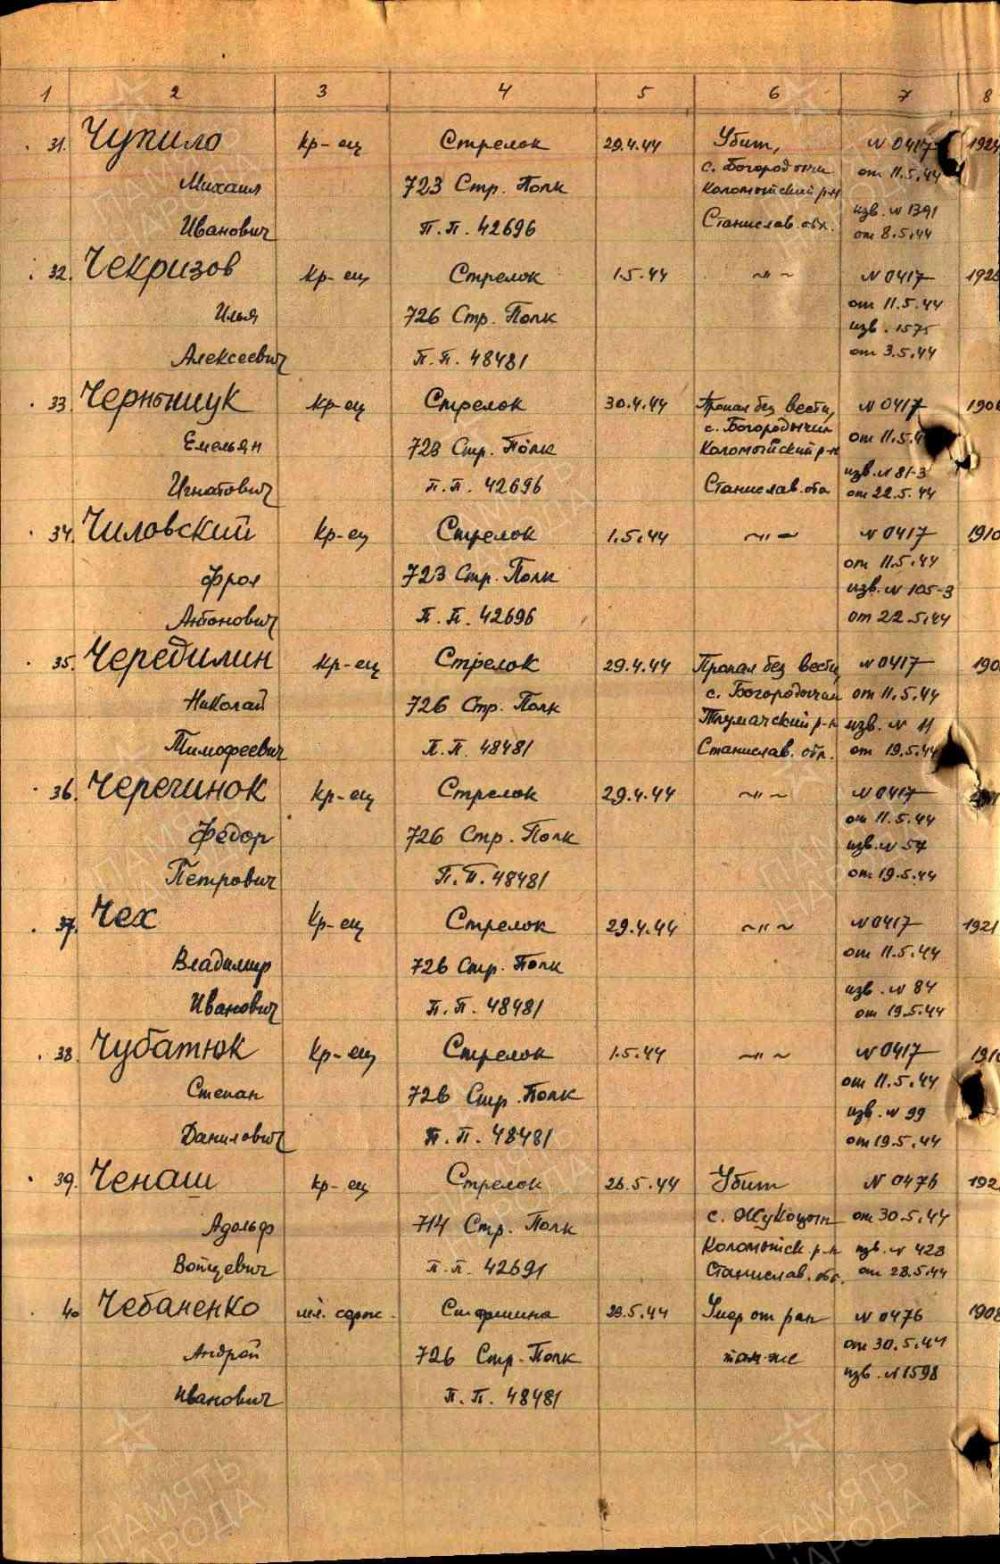 1 2 3 4 5 6 7 8
31. Чупило кр-ец Стрелок 29.4.44 Убит, N 0417 1924
Михаил 723 Стр. Полк с. Богородычи от 11.5.44
Коломыйский р-н
Иванович П.П. 42696 Станислав. обл. изв. N 1391
от 8.5.44
32. Чекризов кр-ец Стрелок 1.5.44 ~"~ N 0417
Илья 726 Стр. Полк от 11.5.44
изв. 1575
Алексеевич П.П. 48481 от 3.5.44
33 кр-ец Стрелок 30.4.44 Пропал без вести, N 0417
с. Богородычин
Емельян 723 Стр. Полк Коломыйский р-н от 11.5.4
Игнатович П.П. 42696 Станислав. обл изв. N 81-3
от 22.5.44
34. Чиловский кр-ец Стрелок 1.5.44 ~"~ N 0417 1910
Фрол 723 Стр. Полк от 11.5.44
изв. N 105-3
Антонович П.П. 42696 от 22.5.44
35. Чередилин кр-ец Стрелок 29.4.44 Пропал без вести N 0417 190
Николай 726 Стр. Полк с. Богородычин от 11.5.44
Тлумачский р-н изв. N 11
Тимофеевич П.П. 48481 Станислав. обл. от 19.5.44
36. Черегинок кр-ец Стрелок 29.4.44 ~"~ N 0417
Федор 726 Стр. Полк от 11.5.44
изв. N 54
Петрович П.П. 48481 от 19.5.44
37. Чех кр-ец Стрелок 29.4.44 ~"~ N 0417 1921
Владимир 726 Стр. Полк от 11.5.44
изв. N 84
Иванович П.П. 48481 от 19.5.44
38 Чубатюк кр-ец Стрелок 1.5.44 ~"~ N 0417 191
Степан 726 Стр. Полк от 11.5.44
изв. N 99
Данилович П.П. 48481 от 19.5.44
39. Ченаш кр-ец Стрелок 26.5.44 Убит N 0476 192
Адольф 714 Стр. Полк с. Жукоцын от 30.5.44
Коломыйск. р-н изв. N 428
Войцевич П.П. 42691 Станислав. обл. от 28.5.44
40 Чебаненко мл. серж. Старшина 28.5.44 Умер от ран N 0476 1908
Андрей 726 Стр. Полк там-же от 30.5.44
изв. N 1598
Иванович П.П. 48481
ПАМЯТЬ НАРОДА